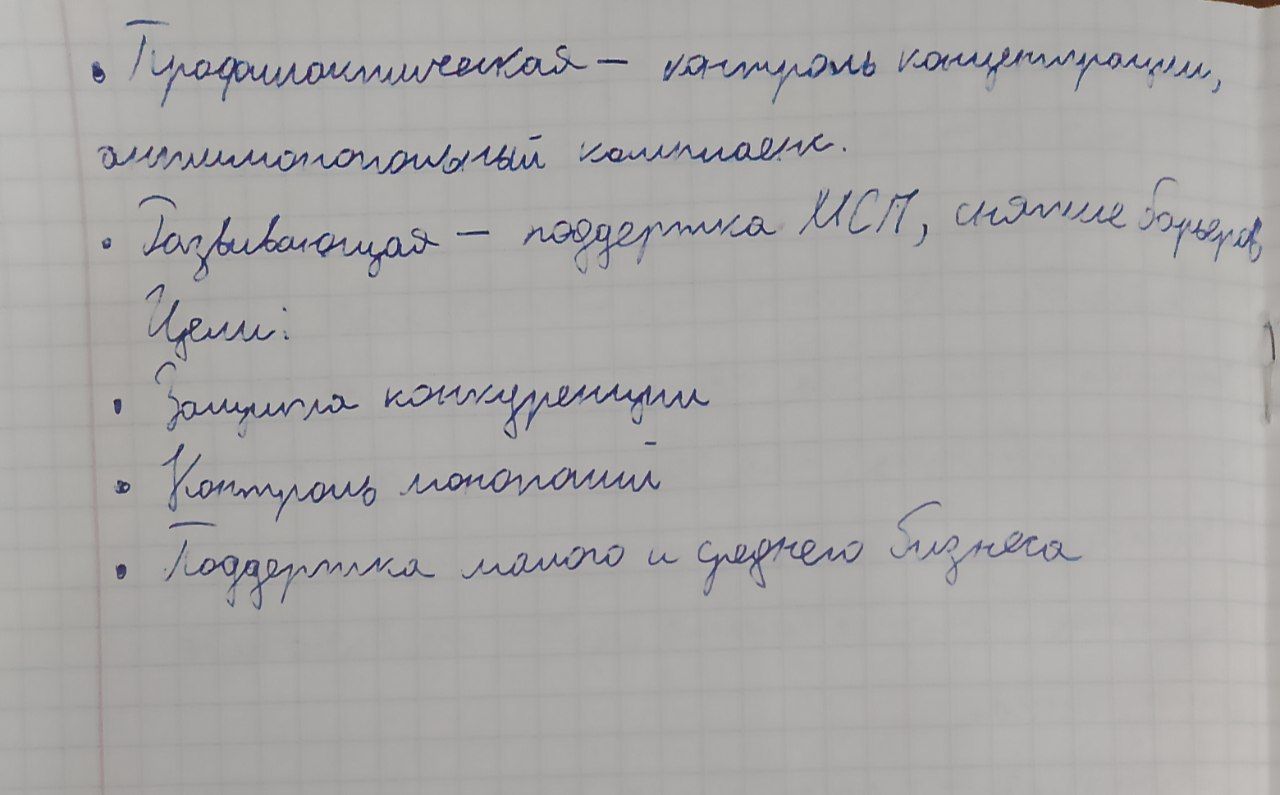 • Профилактическая — контроль концентрации,
антимонопольный комплаенс.
• Развивающая — поддержка МСП, снятие барьеров
Цели:
• Защита конкуренции
• Контроль монополий
• Поддержка малого и среднего бизнеса